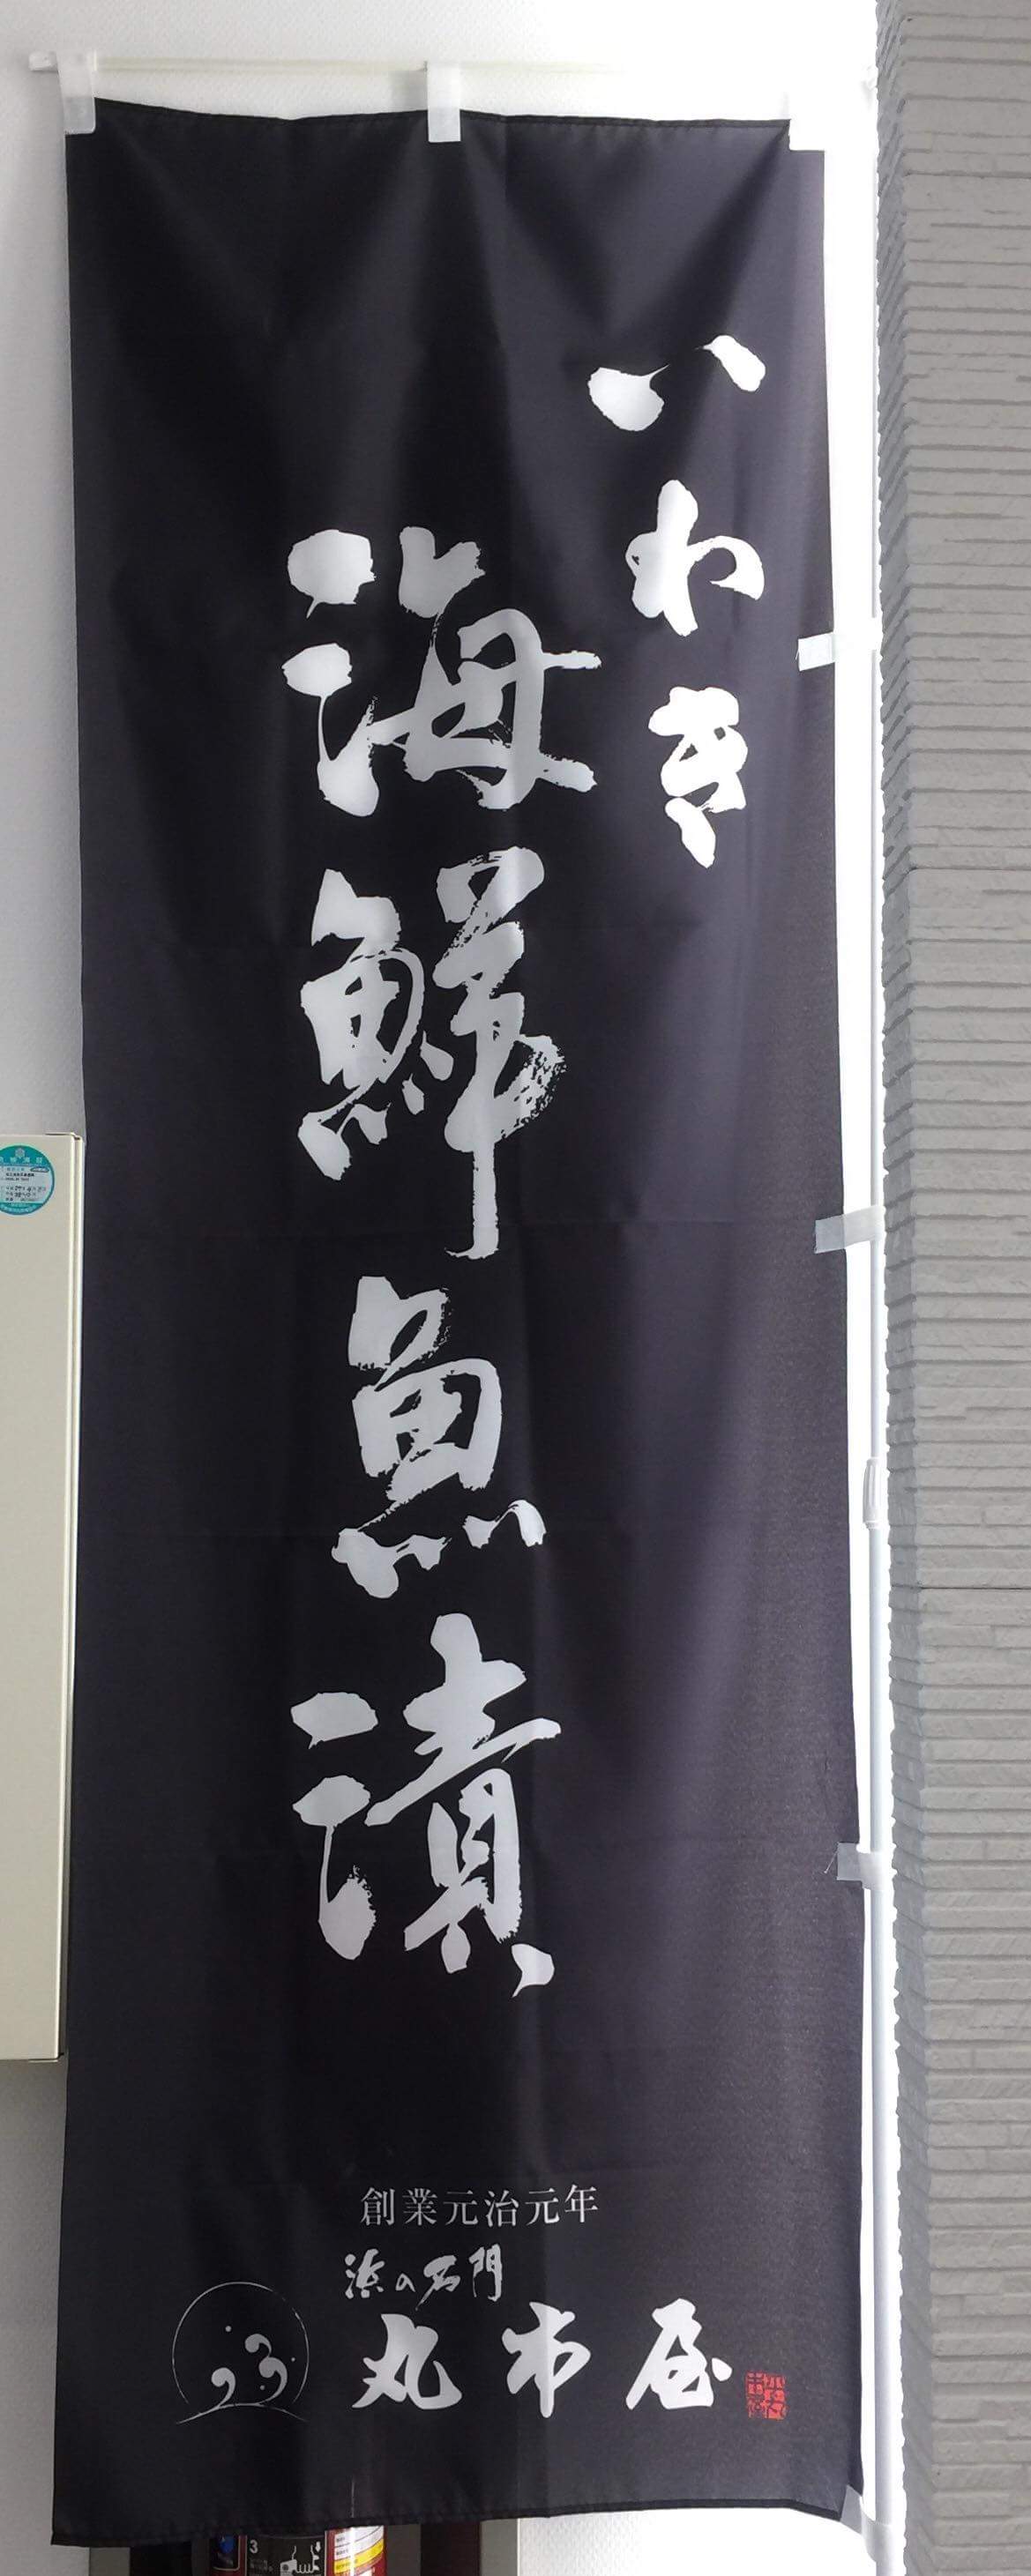 いわき
海鮮魚漬
創業元治元年
浜の名門
丸市屋
3